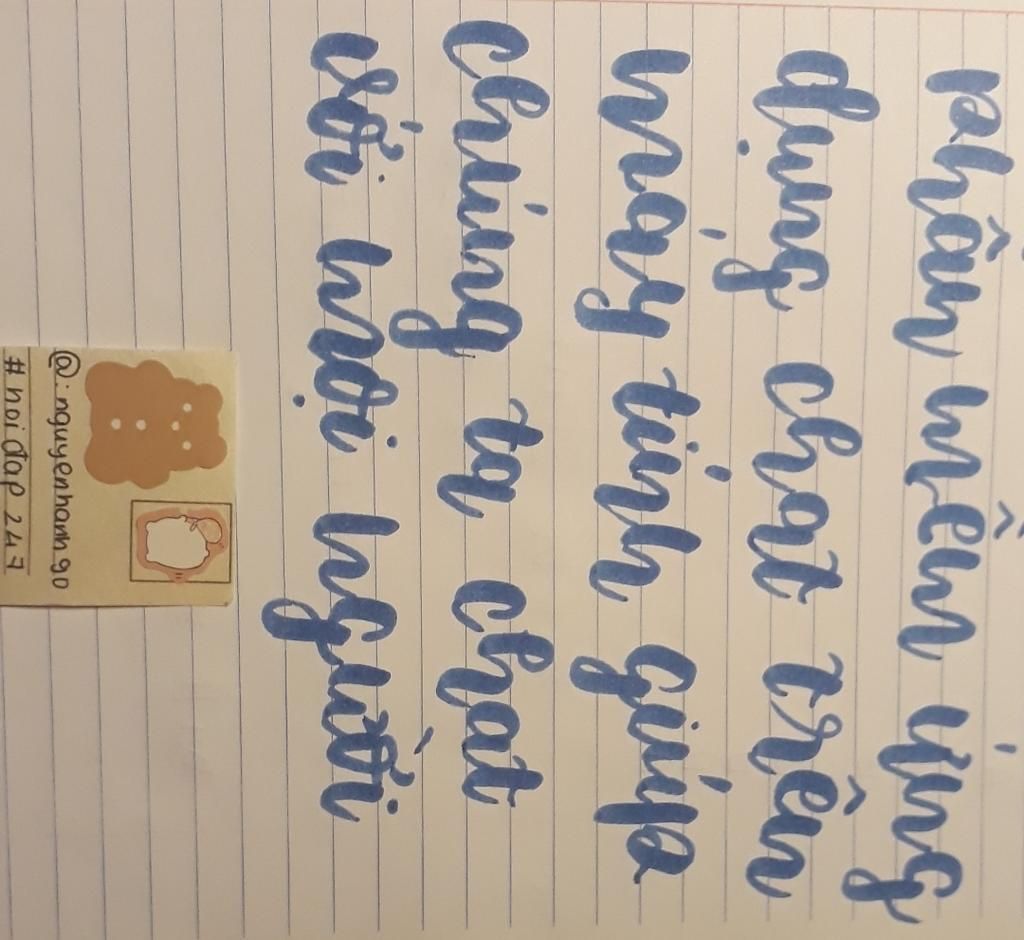 phần mềm ứng
dụng chat trên
máy tính giúp
chúng ta chat
với mọi người
@:nguyenhanh90
#hoi đap 247